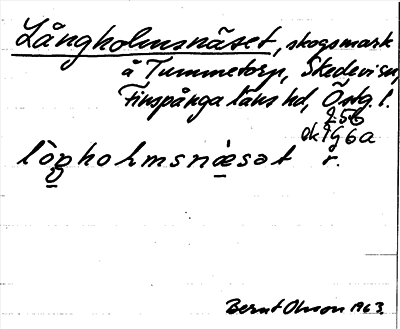 Långholmsnäset, skogsmark
å Tummetorp, Skedevi sn,
Finspånga läns hd, Östg. l.
256
ek 9G 6a
lòŋholmsnæ̀sət r.
Bernt Olsson 1963.